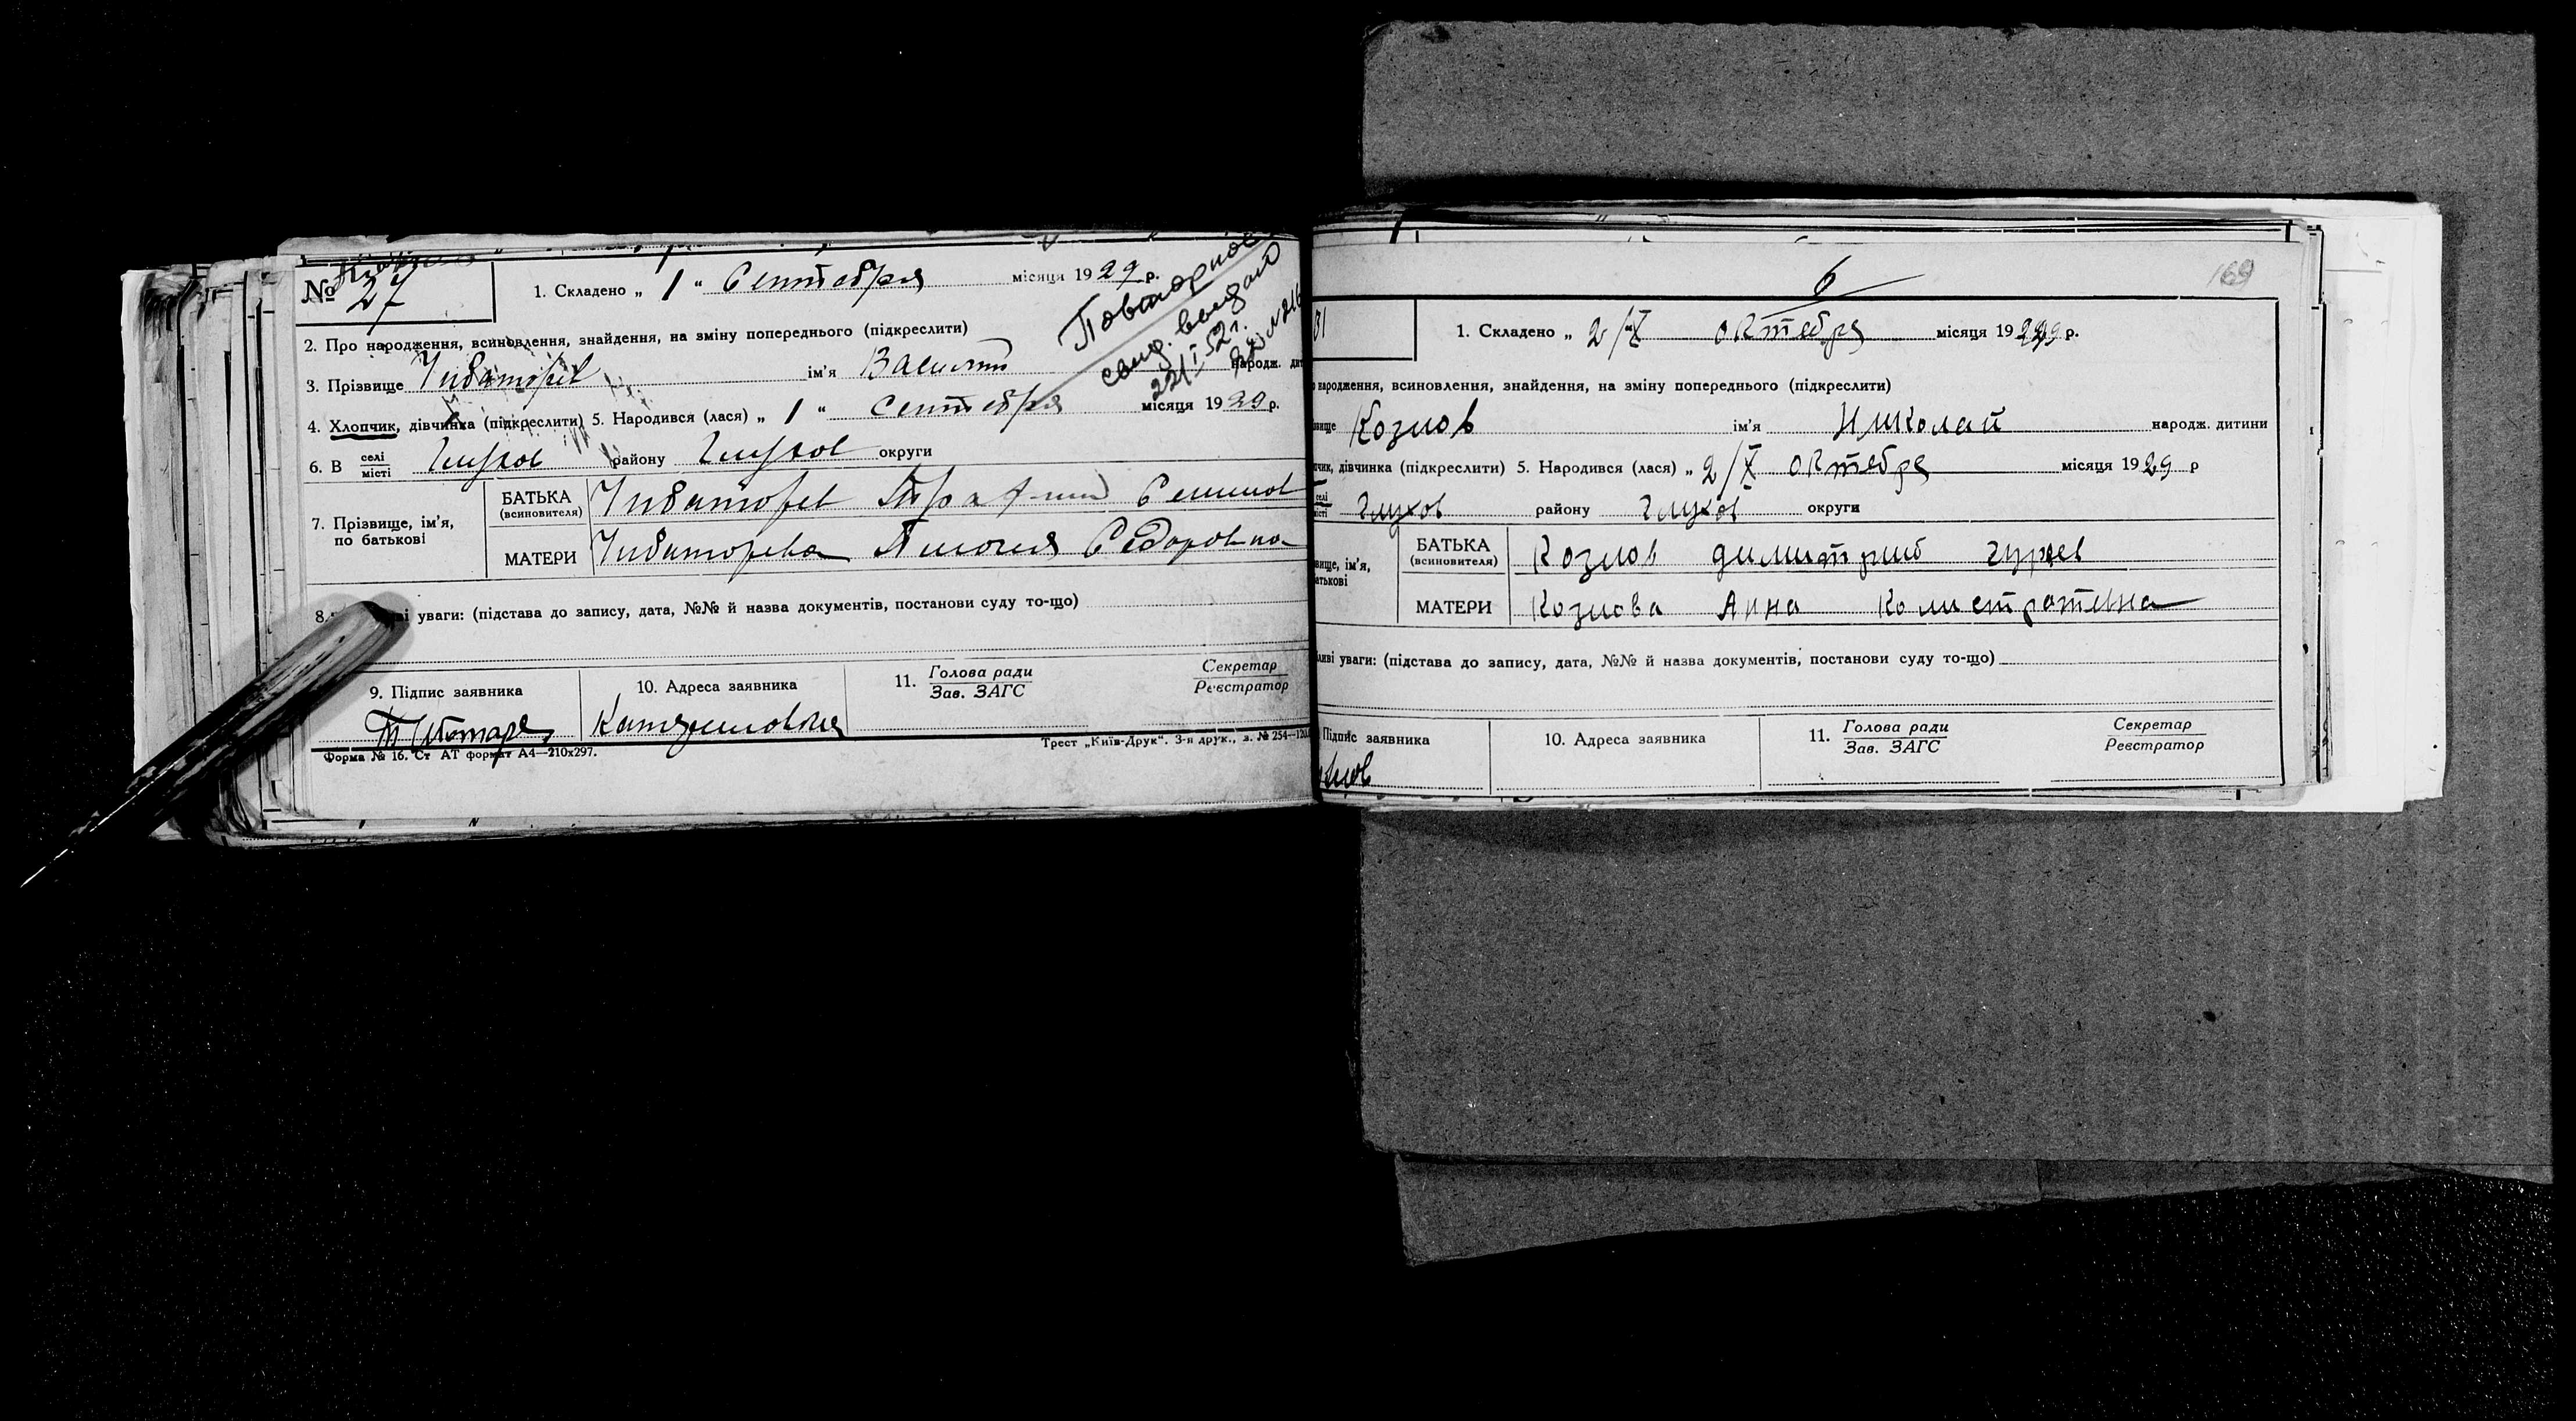 № 27
1. Складено „ 1 “ Сентебря місяця 1929 р.
Повторное
свид. выдано
22/I 52 г.
2. Про народження, всиновлення, знайдення, на зміну попереднього (підкреслити)
3. Прізвище Чибаторев ім'я Василий народж. ди
4. Хлопчик, дівчинка (підкреслити) 5. Народився (лася) „ 1 “ Сентебря місяця 1929 р.
6. В селі/місті Глухов району Глухов округи
7. Прізвище, ім'я, по батькові
БАТЬКА (всиновителя) Чибаторев
МАТЕРИ Чибаторева Пелогея Седоровна
8. ві уваги: (підстава до запису, дата, №№ й назва документів, постанови суду то-що)
9. Підпис заявника
10. Адреса заявника
11. Голова ради / Зав. ЗАГС
Секретар / Реєстратор
Форма № 16. Ст АТ формат А4—210х297.
Трест „Київ-Друк“. 3-я друк., з. № 254—120
6
169
31
1. Складено „ 2/X октебря місяця 1929 р.
народження, всиновлення, знайдення, на зміну попереднього (підкреслити)
вище Козлов ім'я Николай народж. дитини
пчик, дівчинка (підкреслити) 5. Народився (лася) „ 2/X октебря місяця 1929 р
селі/місті Глухов району Глухов округи
вище, ім'я, атькові
БАТЬКА (всиновителя) Козлов димитрий гурев
МАТЕРИ Козлова Анна Колистратевна
ливі уваги: (підстава до запису, дата, №№ й назва документів, постанови суду то-що)
Підпис заявника
10. Адреса заявника
11. Голова ради / Зав. ЗАГС
Секретар / Реєстратор